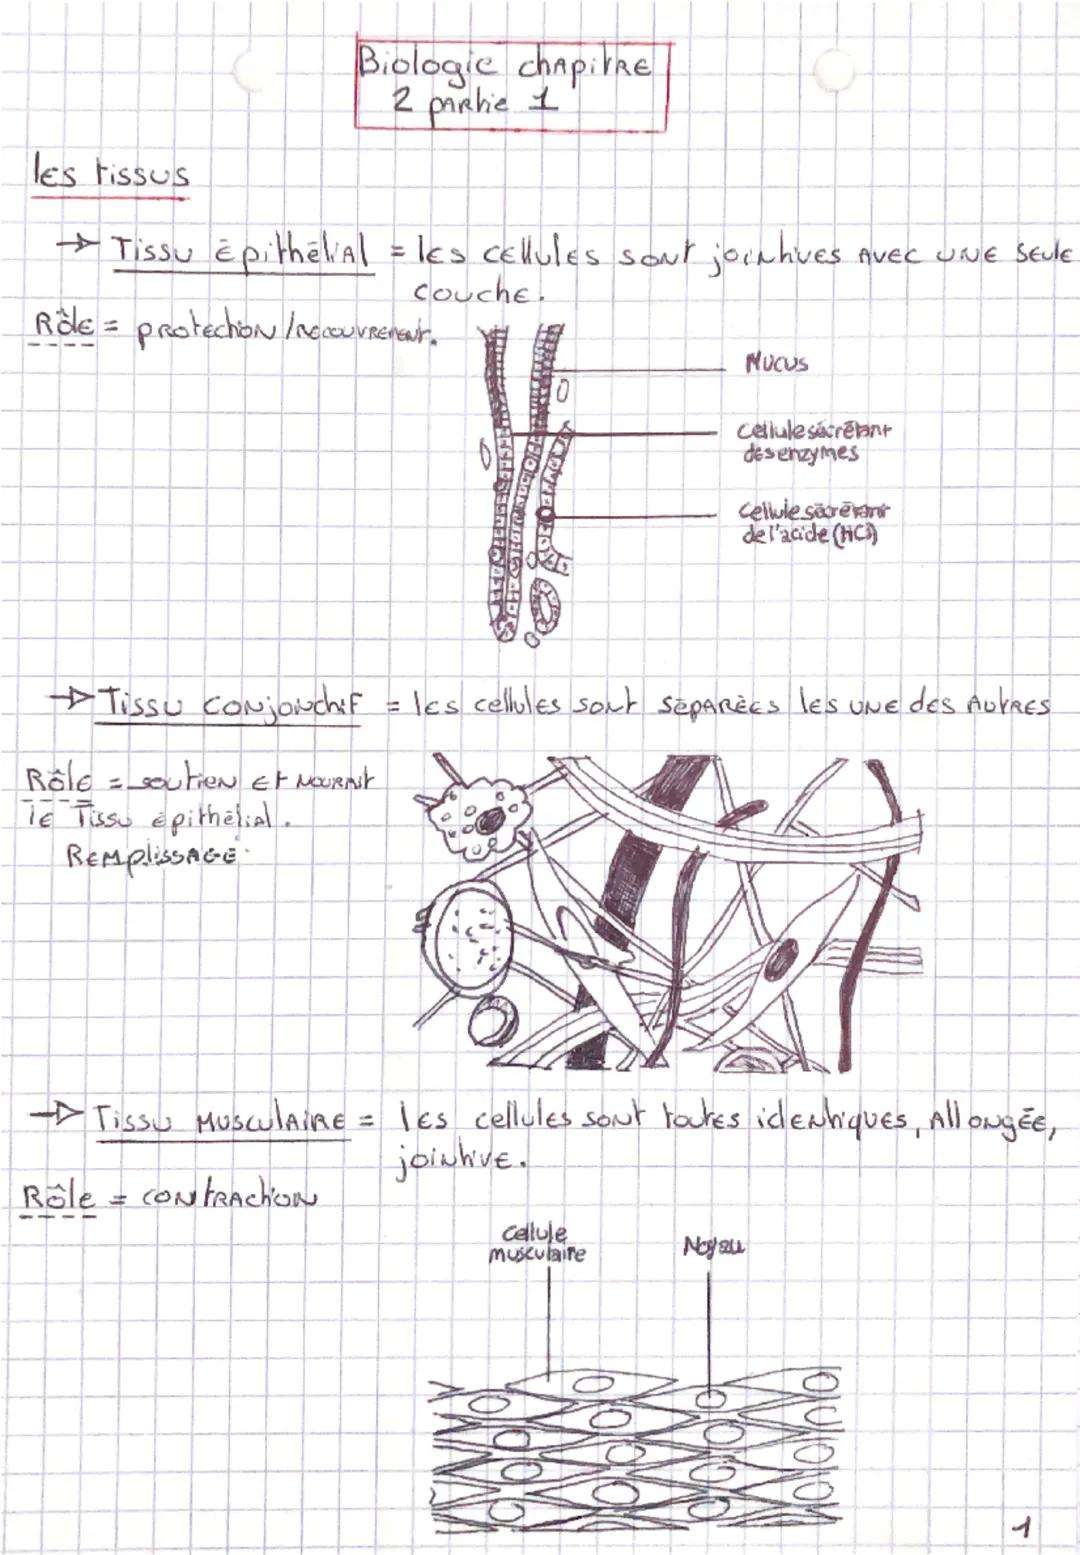 Biologie chapitre
2 partie 1
les tissus
→ Tissu épithélial = les cellules sont jointives avec une seule
couche.
Rôle = protection / recouvrement.
Mucus
Cellule sécrétant
des enzymes
Cellule sécrétant
de l'acide (HCl)
→ Tissu conjonctif = les cellules sont séparées les une des autres
Rôle = soutien et nourrit
le Tissu épithélial.
Remplissage.
→ Tissu musculaire = les cellules sont toutes identiques, allongée,
jointive.
Rôle = contraction
Cellule
musculaire
Noyau
1